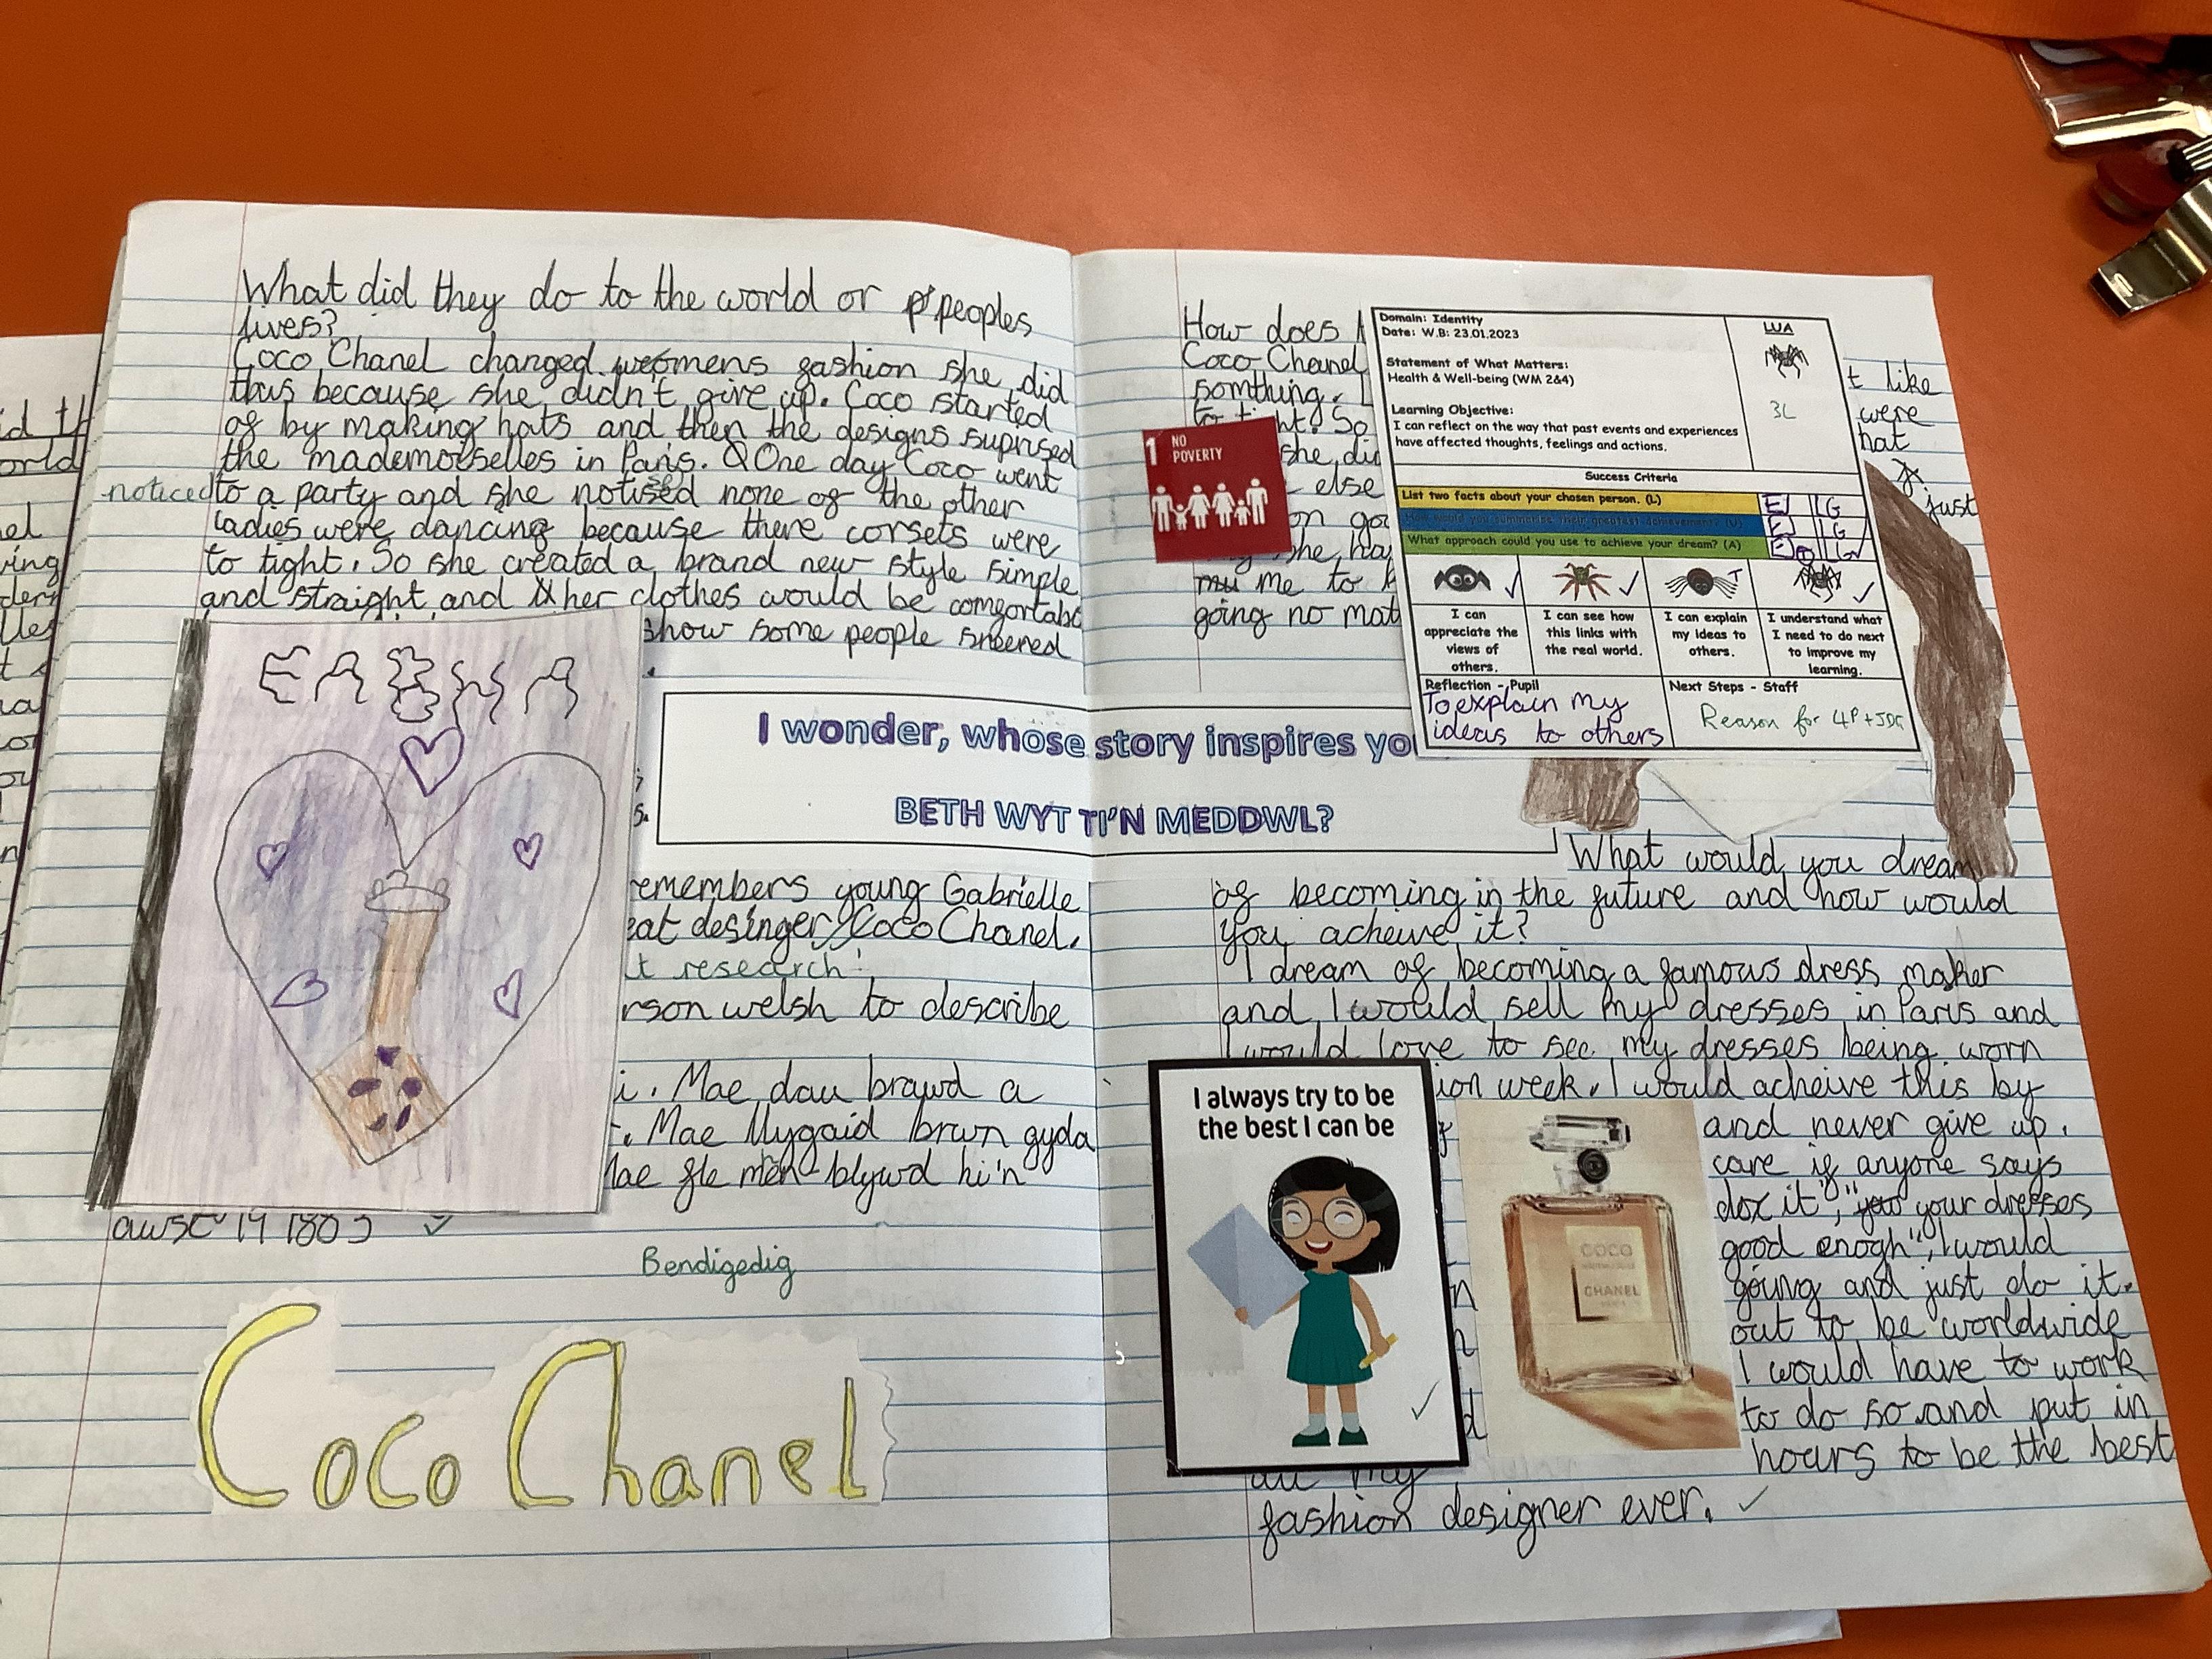 What did they do to the world or peoples
lives?
Coco Chanel changed womens fashion she did
this because she didn't give up. Coco started
of by making hats and then the designs suprised
the mademoiselles in Paris. One day Coco went
noticed
to a party and she notised none of the other
ladies were dancing because there corsets were
to tight. So she created a brand new style simple
and straight and her clothes would be comfortabl
show some people sneered
remembers young Gabrielle
eat desinger Coco Chanel.
t research!
rson welsh to describe
i. Mae dau brawd a
Mae llygaid brwn gyda
lae fle men blywd hi'n
awst 19 1883
Bendigedig
Coco Chanel
I wonder, whose story inspires yo
BETH WYT TI'N MEDDWL?
How does
Coco Chanel
somthing.
to tight. So
she di
else
on go
she ha
me to
going no mat
t like
were
hat
just
1 NO
POVERTY
Domain: Identity
Date: W.B: 23.01.2023
Statement of What Matters:
Health & Well-being (WM 2&4)
Learning Objective:
I can reflect on the way that past events and experiences
have affected thoughts, feelings and actions.
LUA
3L
Success Criteria
List two facts about your chosen person. (L)
How would you summarise their greatest achievement? (U)
What approach could you use to achieve your dream? (A)
I can
appreciate the
views of
others.
I can see how
this links with
the real world.
I can explain
my ideas to
others.
I understand what
I need to do next
to improve my
learning.
Reflection - Pupil
To explain my
ideas to others
Next Steps - Staff
Reason for
What would you dream
of becoming in the future and how would
you acheive it?
I dream of becoming a famous dress maker
and I would sell my dresses in Paris and
I would love to see my dresses being worn
ion week. I would acheive this by
and never give up.
care if anyone says
your dresses
good enogh", I would
going and just do it.
out to be worldwide
I would have to work
to do so and put in
hours to be the best
all my
fashion designer ever.
I always try to be
the best I can be
COCO
MADEMOISELLE
CHANEL
PARIS